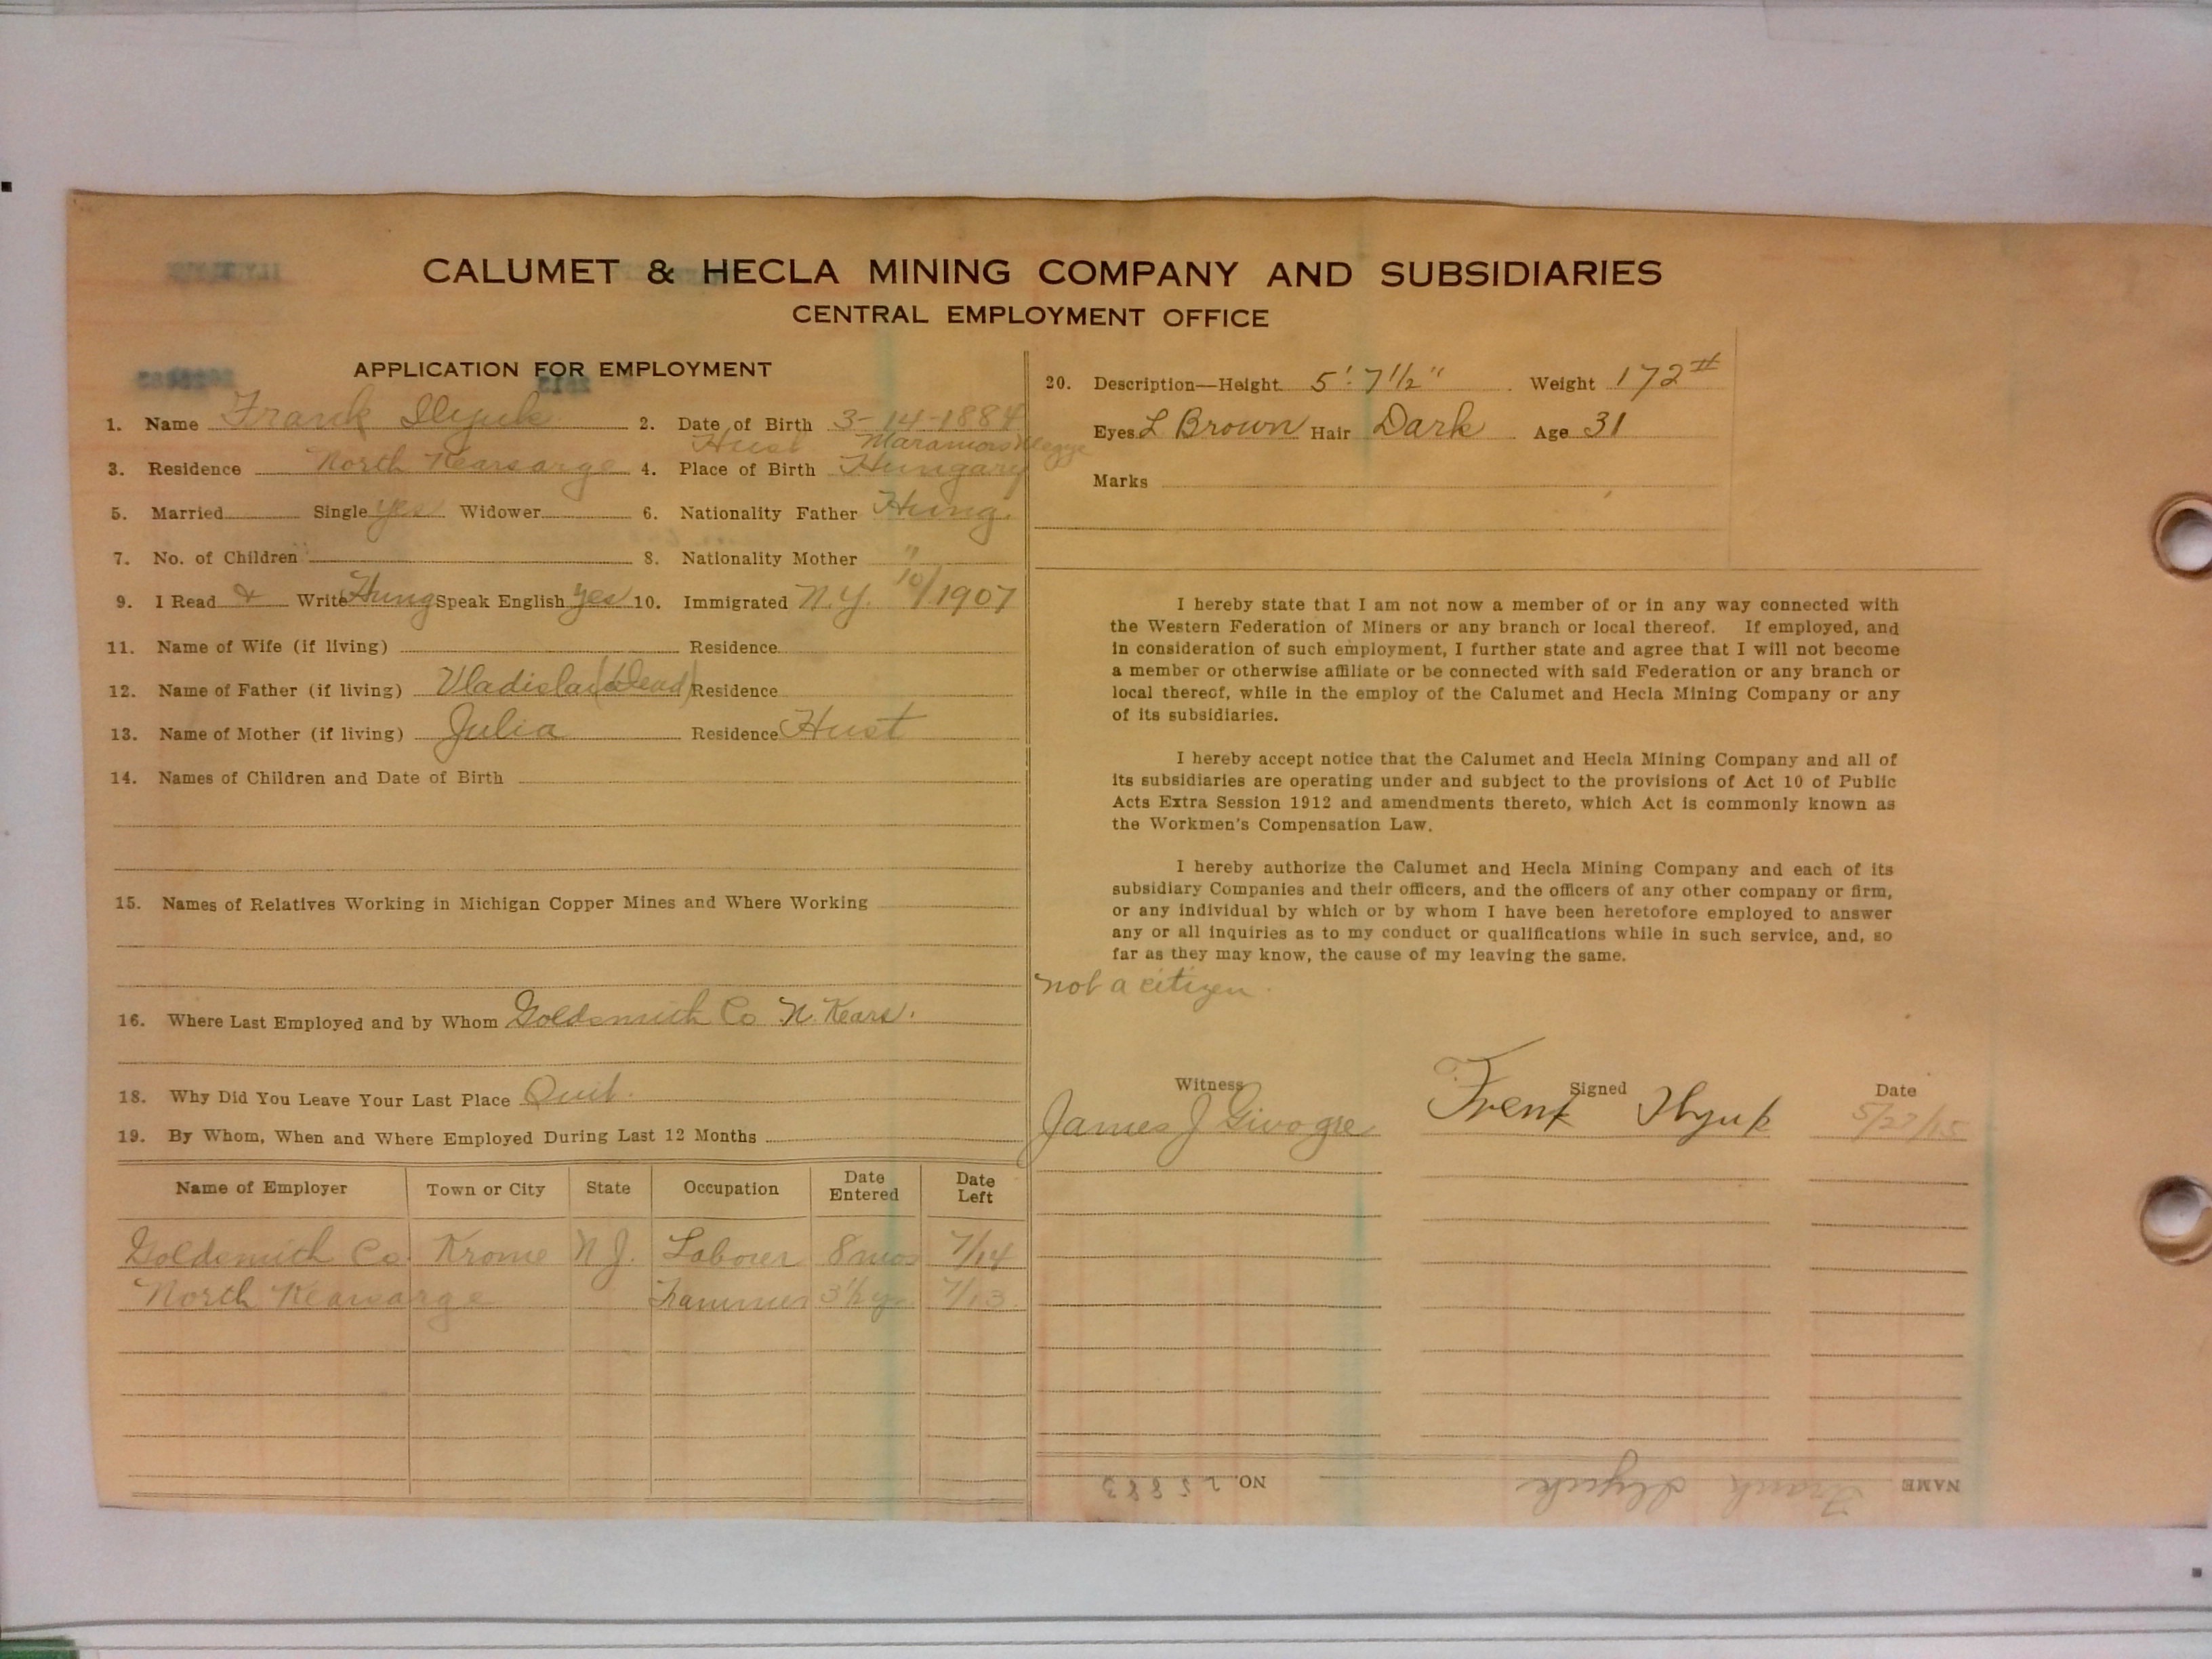 CALUMET & HECLA MINING COMPANY AND SUBSIDIARIES
CENTRAL EMPLOYMENT OFFICE
APPLICATION FOR EMPLOYMENT
1. Name Frank Ilyuk 2. Date of Birth 3-14-1884
Hust Maramoros Megye
3. Residence North Kearsarge 4. Place of Birth Hungary
5. Married Single yes Widower 6. Nationality Father Hung.
7. No. of Children 8. Nationality Mother "
9. I Read & Write Hung Speak English yes 10. Immigrated N.Y. 10/1907
11. Name of Wife (if living) Residence
12. Name of Father (if living) Vladislav (Dead) Residence
13. Name of Mother (if living) Julia Residence Hust
14. Names of Children and Date of Birth
15. Names of Relatives Working in Michigan Copper Mines and Where Working
16. Where Last Employed and by Whom Goldsmith Co N. Kears.
18. Why Did You Leave Your Last Place Quit.
19. By Whom, When and Where Employed During Last 12 Months
Name of Employer Town or City State Occupation Date Entered Date Left
Goldsmith Co. Krome N J. Laborer 8 mos 7/14
North Kearsarge Trammer 3 1/2 yrs 7/13
20. Description—Height 5'-7 1/2" Weight 172#
Eyes L Brown Hair Dark Age 31
Marks
I hereby state that I am not now a member of or in any way connected with
the Western Federation of Miners or any branch or local thereof. If employed, and
in consideration of such employment, I further state and agree that I will not become
a member or otherwise affiliate or be connected with said Federation or any branch or
local thereof, while in the employ of the Calumet and Hecla Mining Company or any
of its subsidiaries.
I hereby accept notice that the Calumet and Hecla Mining Company and all of
its subsidiaries are operating under and subject to the provisions of Act 10 of Public
Acts Extra Session 1912 and amendments thereto, which Act is commonly known as
the Workmen's Compensation Law.
I hereby authorize the Calumet and Hecla Mining Company and each of its
subsidiary Companies and their officers, and the officers of any other company or firm,
or any individual by which or by whom I have been heretofore employed to answer
any or all inquiries as to my conduct or qualifications while in such service, and, so
far as they may know, the cause of my leaving the same.
not a citizen.
Witness Signed Date
James J Givogre Frenk Ilyuk 5/27/15
NAME Frank Ilyuk NO. 25883